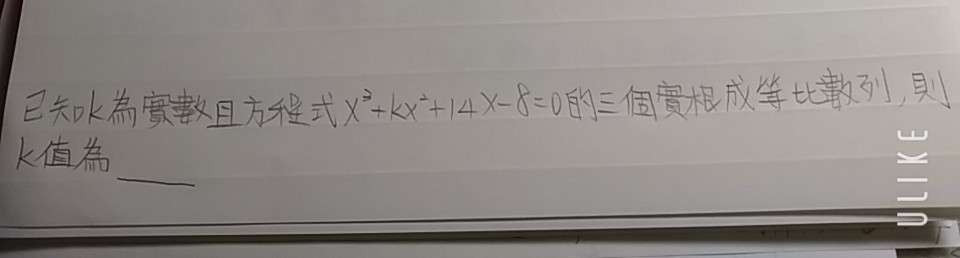 已知k為實數且方程式x³+kx²+14x-8=0的三個實根成等比數列,則
k值為____
ULIKE